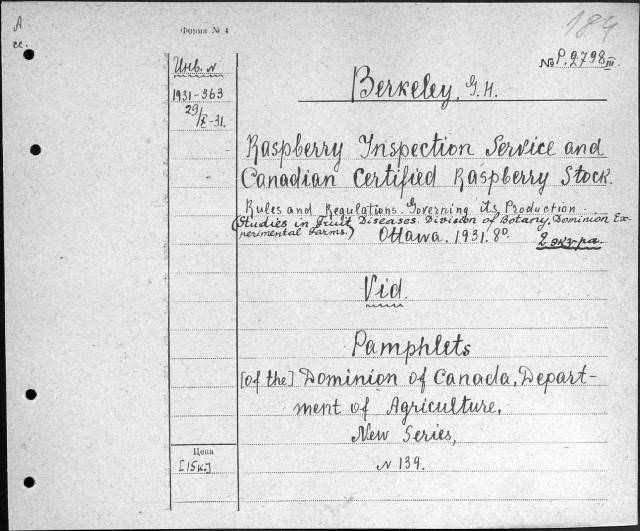 А
се.
Форма № 4
184
№ P.2798 III
Инв. N
1931-363
29/X-31.
Berkeley, G.H.
Raspberry Inspection Service and
Canadian Certified Raspberry Stock.
Rules and Regulations Governing its Production.
(Studies in Fruit Diseases. Division of Botany, Dominion Ex-
perimental Farms.) Ottawa. 1931. 8º.
2 экз-ра.
Vid.
Pamphlets
[of the] Dominion of Canada, Depart-
ment of Agriculture,
New Series,
N 139.
Цена
[15к.]